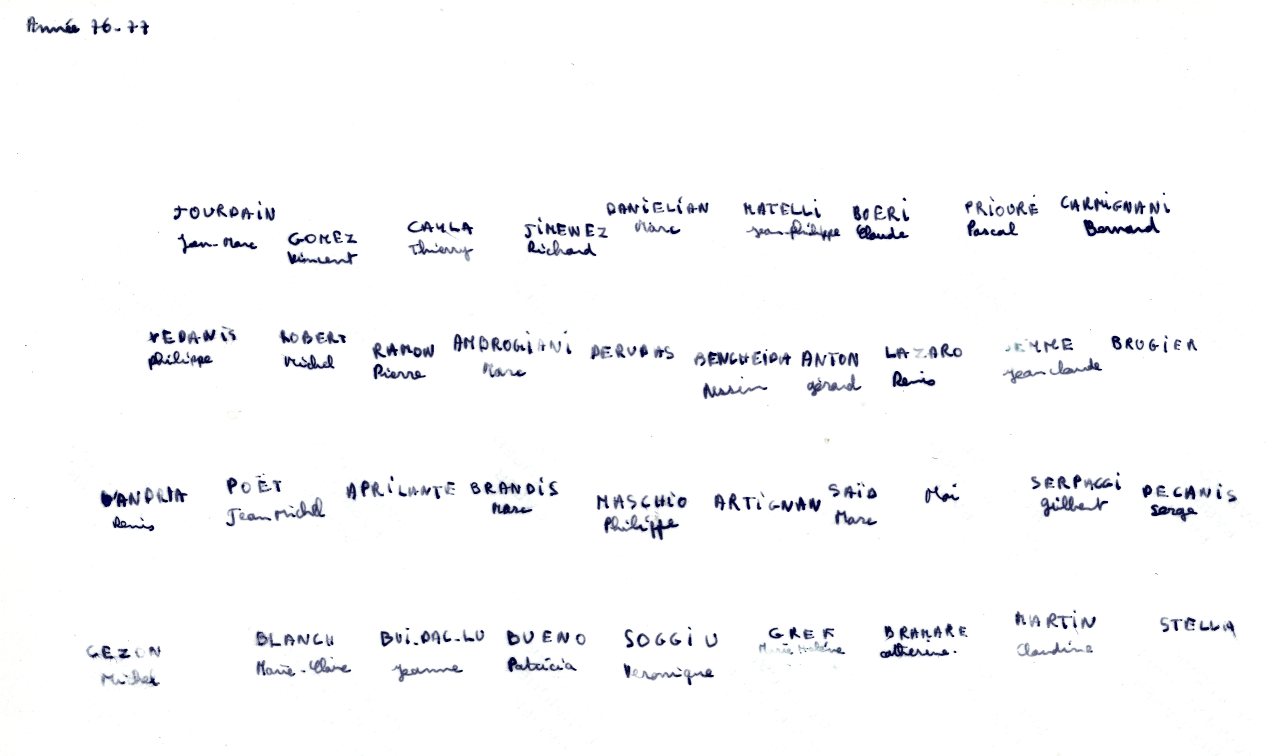 Année 76-77
JOURDAIN GOMEZ CAYLA JIMENEZ DANIELIAN MATELLI BOERI PRIOURÉ CARMIGNANI
Jean-Marc Vincent Thierry Richard Marc Jean-philippe Claude Pascal Bernard
ROBERT RAMON AMBROGIANI BENGHEIDA ANTON LAZARO BRUGIER
philippe Michel Pierre Marc gérard Denis Jean claude
D'ANDRIA POËT APRILANTE BRANDIS MASCHIO ARTIGNAN SAÏD Moi SERPAGGI DECANIS
Denis Jean Michel Marc Philippe Marc gilbert Serge
GEZON BLANCH BUI-DAC-LU BUENO SOGGIU GREF BRAMARE MARTIN STELLA
Michel Marie-Claire Jeanne Patricia Veronique Marie Hélène catherine. Claudine